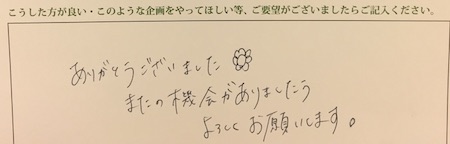 こうした方が良い・このような企画をやってほしい等、ご要望がございましたらご記入ください。
ありがとうございました
またの機会がありましたら
よろしくお願いします。